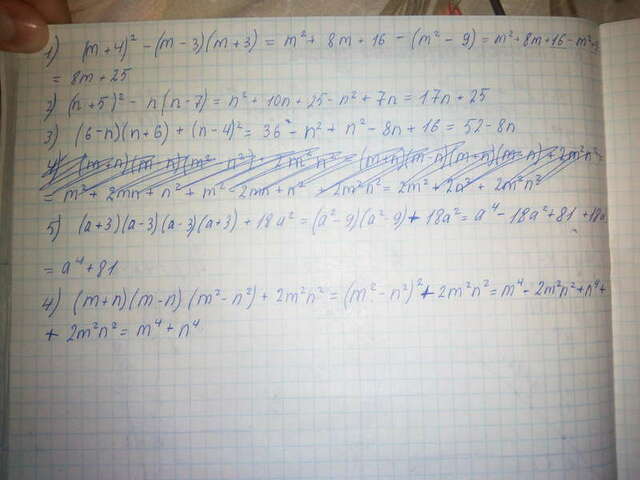 1) (m+4)² - (m-3)(m+3) = m² + 8m + 16 - (m² - 9) = m² + 8m + 16 - m² + 9
= 8m + 25
2) (n+5)² - n(n-7) = n² + 10n + 25 - n² + 7n = 17n + 25
3) (6-n)(n+6) + (n-4)² = 36 - n² + n² - 8n + 16 = 52 - 8n
4) (m+n)(m-n)(m² n²) + 2m²n² (m+n)(m-n)(m+n)(m-n) + 2m²n² =
= m² + 2mn + n² + m² 2mn + n² + 2m²n² = 2m² + 2n² + 2m²n²
5) (a+3)(a-3)(a-3)(a+3) + 18a² = (a²-9)(a²-9) + 18a² = a⁴ - 18a² + 81 + 18a
= a⁴ + 81
4) (m+n)(m-n)(m²-n²) + 2m²n² = (m²-n²)² + 2m²n² = m⁴ - 2m²n² + n⁴ +
+ 2m²n² = m⁴ + n⁴